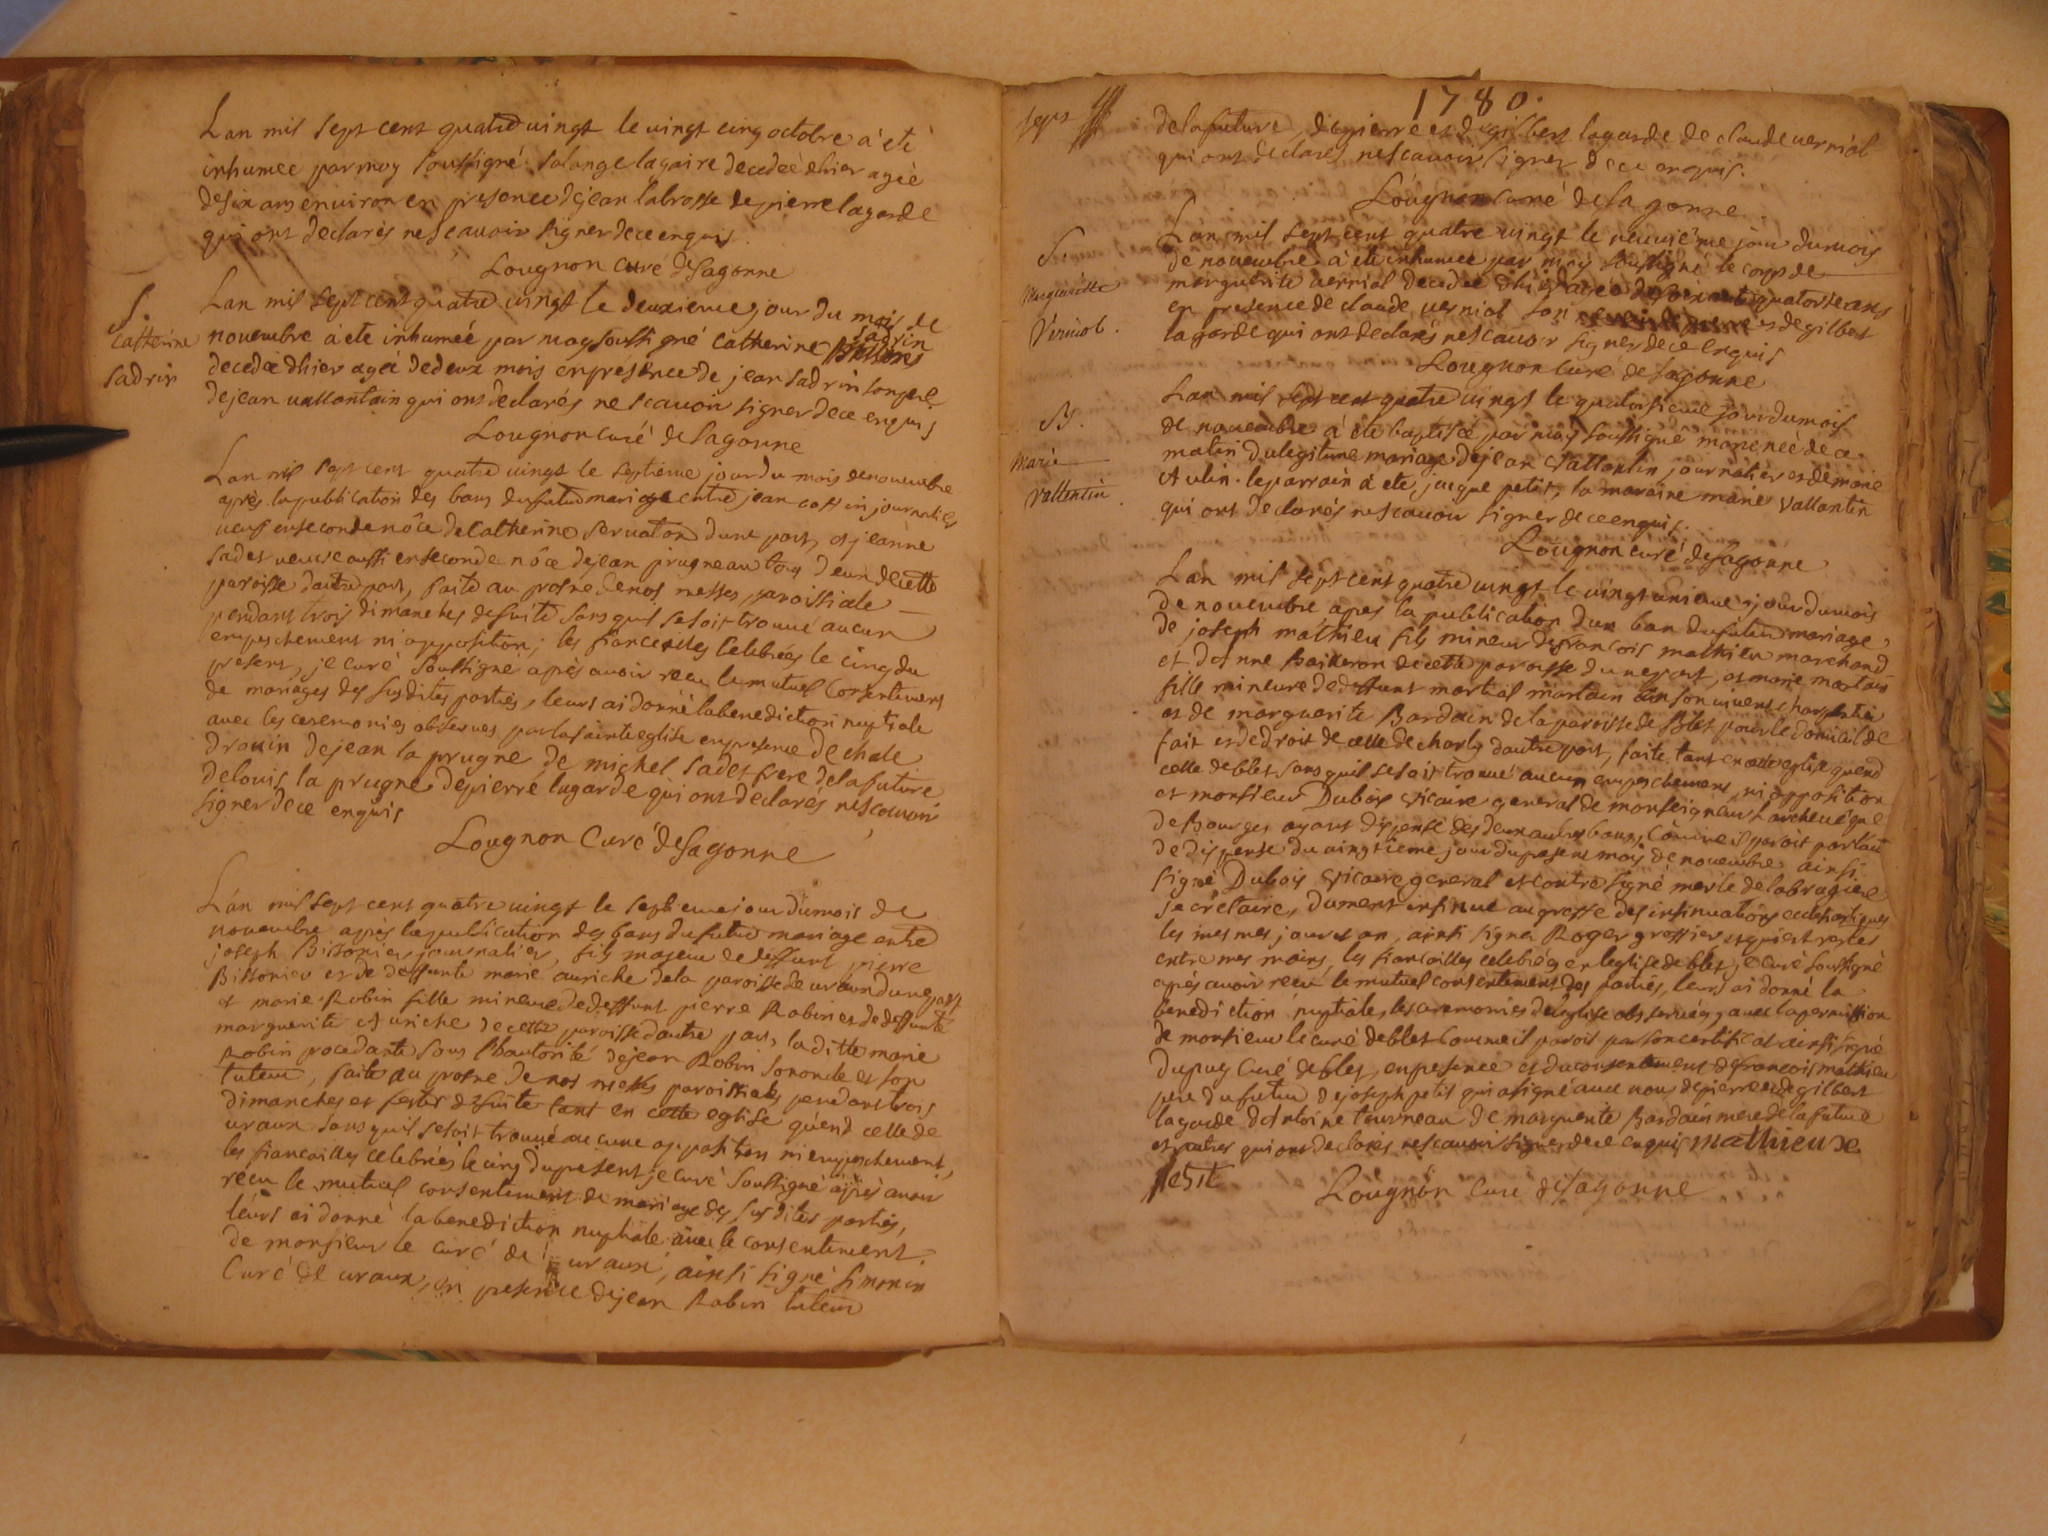 Lan mil sept cent quatre vingt le vingt cinq octobre à été
inhumée par moy soussigné solange lagaire decedeé dhier ageé
de six ans environ en presence de jean labrosse de pierre lagarde
qui ont declarés ne scavoir signer de ce enquis.
Lougnon curé de Sagonne
S.
Catherine
Sadrin
Lan mil sept cent quatre vingt le deuxieme jour du mois de
novembre à ete inhumeé par moy soussigné catherine sadrin
decedeé dhier ageé de deux mois en présence de jean sadrin son pere
de jean vallantain qui ont declarés ne scavoir signer de ce enquis
Lougnon curé de Sagonne
Lan mil sept cent quatre vingt le septieme jour du mois de novembre
après la publication des bans du futur mariage entre jean cottin journalier
veuf en seconde nôce de Catherine servaton dune part, et jeanne
sadet veuve aussi en seconde nôce de jean prugneau tous deux de cette
paroisse dautre part, faite au prosne de nos messes paroissiale
pendant trois dimanches de suite sans quil se soit trouvé aucun
empeschement ni opposition; les fiancailles celebrées le cinq du
present, je curé soussigné après avoir recu le mutuel consentement
de mariages des susdites parties, leurs ai donné la benediction nuptiale
avec les ceremonies observes par la sainte eglise en presence de
drouin de jean la prugne de michel sadet frere de la future
de louis la prugne de pierre lagarde qui ont declarés ne scavoir
signer de ce enquis
Lougnon Curé de Sagonne
Lan mil sept cent quatre vingt le septieme jour du mois de
novembre après la publication des bans du futur mariage entre
joseph Bissonier journalier, fils majeur de deffunt pierre
Bissonier et de deffunte marie auriche de la paroisse de uraux dune part
et marie Robin fille mineure de deffunt pierre Robin et de deffunte
marguerite Auriche de cette paroisse dautre part, la ditte marie
Robin procedante sous lhautorité de jean Robin son oncle et son
tuteur, faite au prosne de nos messes paroissiales pendant trois
dimanches et festes de suite tant en cette eglise quend celle de
uraux sans quil se soit trouvé aucune opposition ni empeschement,
les fiancailles celebrées le cinq du present je curé soussigné après avoir
recu le mutuel consentement de mariage des susdites parties,
leurs ai donné la benediction nuptiale avec le consentement
de monsieur le curé de uraux, ainsi signé simonin
Curé de uraux, en presence de jean Robin tuteur
1780.
sept
de la future, de pierre et de gilbert lagarde de claude verniol
qui ont declarés ne scavoir signer de ce enquis.
Lougnon curé de Sagonne
S.
Marguerite
Verniol.
Lan mil sept cent quatre vingt le neuvième jour du mois
de novembre à été inhumée par moy soussigné le corps de
marguerite verniol decedeé dhier ageé de soixante quatorze ans
en presence de claude verniol son et de gilbert
lagarde qui ont declarés ne scavoir signer de ce enquis
Lougnon Curé de Sagonne
B.
Marie
Vallentin
Lan mil sept cent quatre vingt le quatorsieme jour du mois
de novembre à été baptiseé par moy soussigné marie neé de ce
matin du legitime mariage de jean Vallantin journalier et de marie
Aulin. le parrain à ete jacque petit, la maraine marie vallantin
qui ont declarés ne scavoir signer de ce enquis.
Lougnon curé de Sagonne
Lan mil sept cent quatre vingt le vingt unieme jour du mois
de novembre apres la publication dun ban du futur mariage
de joseph mathieu fils mineur de francois mathieu marchand
et danne Baiteron de cette paroisse dune part, et marie martain
fille mineure de deffunt martial martain en son vivent charpentier
et de marguerite Bardain de la paroisse de Blet pour le domicil de
fait et de droit de celle de charly dautre part, faite tant en notre eglise quend
celle de blet sans quil se soit trouvé aucun empeschement, ni opposition
et monsieur Dubois vicaire general de monseigneur L'archeveque
de Bourges ayant dispensé des deux autres bans, comme il paroit par lacte
de dispense du vingtieme jour du present mois de novembre ainsi
signé Dubois vicaire general et contre signé merle de labrugiere
secretaire, dument insinué au greffe des insinuations ecclesiastiques
les mesmes jour et an, ainsi signé Roger greffier et qui est restes
entre mes mains, les fiancailles celebrées en leglise de blet, je curé soussigné
après avoir recu le mutuel consentement des parties, leurs ai donné la
benediction nuptiale, les ceremonies de leglise observées, avec la permission
de monsieur le curé de blet comme il parois par son certificat ainsi signé
dupuy curé de blet, en presence et du consentement de francois mathieu
pere du futur de joseph petit qui a signé avec nou, de pierre et de gilbert
lagarde dantoine tourneau de marguerite Bardain mere de la future
et autres qui ont declarés ne scavoir signer de ce enquis Mathieux
petit
Lougnon Curé de Sagonne